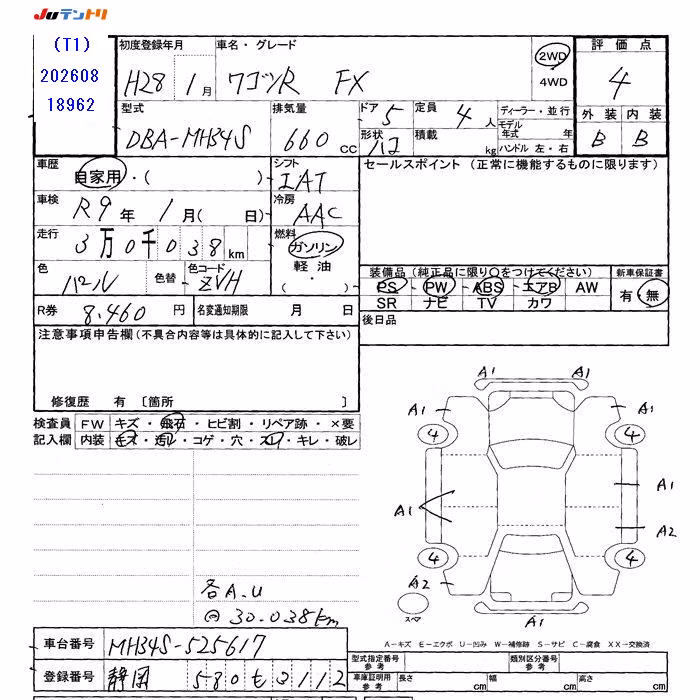 JUテントリ
(T1)
202608
18962
初度登録年月
H28 1月
車名・グレード
ワゴンR FX
2WD
4WD
評価点
4
外装 内装
B B
型式
DBA-MH34S
排気量
660 CC
ドア 5
形状 ハコ
定員 4人
積載 kg
ディーラー・並行
モデル年式 年
ハンドル 左・右
車歴
自家用・( )
シフト
IAT
車検
R9年 1月( 日)
冷房
AAC
走行
3万0千038km
燃料
ガソリン
軽油
( )
色
パール
色替
色コード
ZVH
R券 8,460円
名変通知期限 月 日
セールスポイント (正常に機能するものに限ります)
装備品(純正品に限り○をつけてください)
PS・PW・ABS・エアB・AW
SR ナビ TV カワ
新車保証書
有・無
後日品
注意事項申告欄(不具合内容等は具体的に記入して下さい)
修復歴 有〔箇所 〕
検査員記入欄
FW キズ・飛石・ヒビ割・リペア跡・×要
内装 キズ・汚レ・コゲ・穴・スレ・キレ・破レ
各A.U
@30.038km
A1 A1
A1 A1
4 4
A1 A1
A2
4 4
A2
A1
スペア
A−キズ E−エクボ U−凹み W−補修跡 S−サビ C−腐食 XX−交換済
車台番号 MH34S-525617
登録番号 静岡 580 も 3112
型式指定番号 参考
類別区分番号 参考
車庫証明用 参考
長さ cm
幅 cm
高さ cm